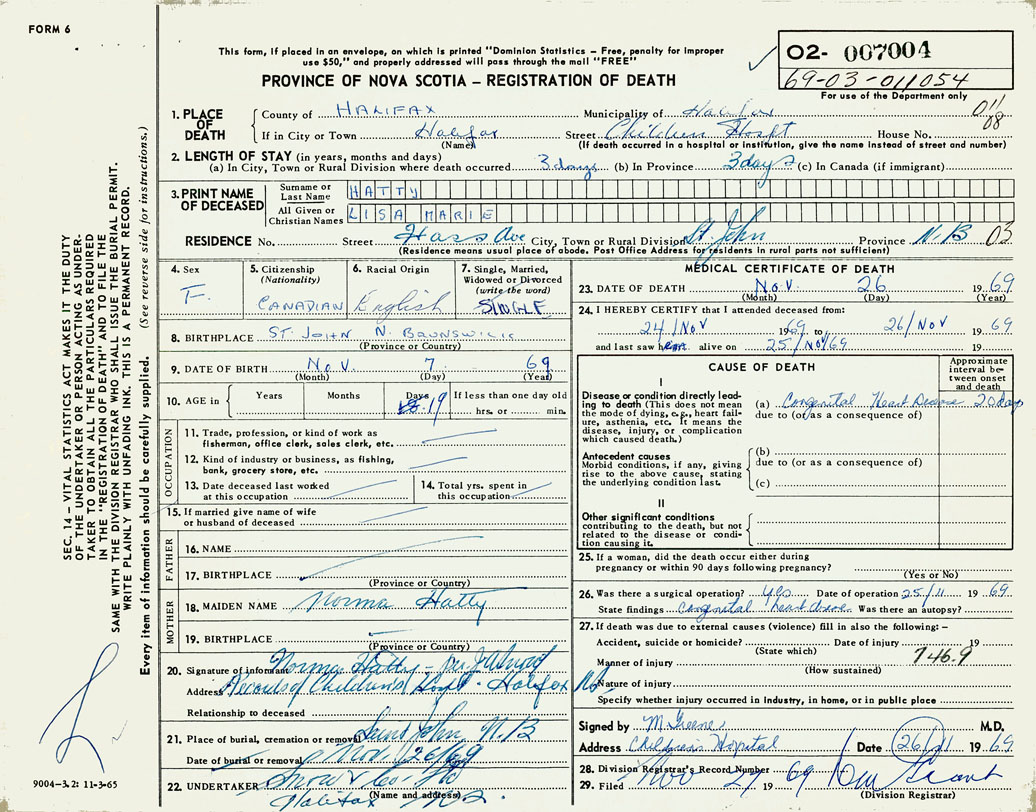 FORM 6
This form, if placed in an envelope, on which is printed "Dominion Statistics – Free, penalty for improper
use $50," and properly addressed will pass through the mail "FREE"
PROVINCE OF NOVA SCOTIA – REGISTRATION OF DEATH
02- 007004
69-03-011054
For use of the Department only
011
08
1. PLACE OF DEATH
County of HALIFAX Municipality of Halifax
If in City or Town Halifax Street Children Hospt House No.
(Name) (If death occurred in a hospital or institution, give the name instead of street and number)
2. LENGTH OF STAY (in years, months and days)
(a) In City, Town or Rural Division where death occurred 3 days (b) In Province 3 days (c) In Canada (if immigrant)
3. PRINT NAME OF DECEASED
Surname or Last Name HATTY
All Given or Christian Names LISA MARIE
RESIDENCE No. Street Ave City, Town or Rural Division St John Province N.B 03
(Residence means usual place of abode. Post Office Address for residents in rural parts not sufficient)
4. Sex
F.
5. Citizenship
(Nationality)
CANADIAN
6. Racial Origin
English
7. Single, Married,
Widowed or Divorced
(write the word)
SINGLE
8. BIRTHPLACE ST. JOHN N. BRUNSWICK
(Province or Country)
9. DATE OF BIRTH Nov. 7 69
(Month) (Day) (Year)
10. AGE in Years Months Days 19 If less than one day old
hrs. or min.
OCCUPATION
11. Trade, profession, or kind of work as
fisherman, office clerk, sales clerk, etc.
12. Kind of industry or business, as fishing,
bank, grocery store, etc.
13. Date deceased last worked
at this occupation
14. Total yrs. spent in
this occupation
15. If married give name of wife
or husband of deceased
FATHER
16. NAME
17. BIRTHPLACE
(Province or Country)
MOTHER
18. MAIDEN NAME Norma Hatty
19. BIRTHPLACE
(Province or Country)
20. Signature of informant Norma Hatty - per
Address Records of Children's Hospt - Halifax NS
Relationship to deceased
21. Place of burial, cremation or removal Saint John N.B
Date of burial or removal Nov. 26/69
22. UNDERTAKER Snow & Co. Ltd
(Name and address)
Halifax N.S.
MEDICAL CERTIFICATE OF DEATH
23. DATE OF DEATH Nov. 26 1969
(Month) (Day) (Year)
24. I HEREBY CERTIFY that I attended deceased from:
24/Nov 1969 to 26/Nov 1969
and last saw her alive on 25/Nov/69 19
CAUSE OF DEATH
Approximate
interval be-
tween onset
and death
I
Disease or condition directly lead-
ing to death (This does not mean
the mode of dying, e.g., heart fail-
ure, asthenia, etc. It means the
disease, injury, or complication
which caused death.)
(a) Congenital Heart Disease 20 days
due to (or as a consequence of)
Antecedent causes
Morbid conditions, if any, giving
rise to the above cause, stating
the underlying condition last.
(b)
due to (or as a consequence of)
(c)
II
Other significant conditions
contributing to the death, but not
related to the disease or condi-
tion causing it.
25. If a woman, did the death occur either during
pregnancy or within 90 days following pregnancy?
(Yes or No)
26. Was there a surgical operation? yes Date of operation 25/11 1969.
State findings Congenital heart disease Was there an autopsy?
27. If death was due to external causes (violence) fill in also the following:–
Accident, suicide or homicide? Date of injury 19
(State which)
746.9
Manner of injury
(How sustained)
Nature of injury
Specify whether injury occurred in industry, in home, or in public place
Signed by M. Greene M.D.
Address Childrens Hospital Date 26/11 1969.
28. Division Registrar's Record Number
29. Filed Nov 27 1969
(Division Registrar)
SEC. 14 – VITAL STATISTICS ACT MAKES IT THE DUTY
OF THE UNDERTAKER OR PERSON ACTING AS UNDER-
TAKER TO OBTAIN ALL THE PARTICULARS REQUIRED
IN THE "REGISTRATION OF DEATH" AND TO FILE THE
SAME WITH THE DIVISION REGISTRAR WHO SHALL ISSUE THE BURIAL PERMIT.
WRITE PLAINLY WITH UNFADING INK. THIS IS A PERMANENT RECORD.
Every item of information should be carefully supplied. (See reverse side for instructions.)
9004–3.2: 11-3-65